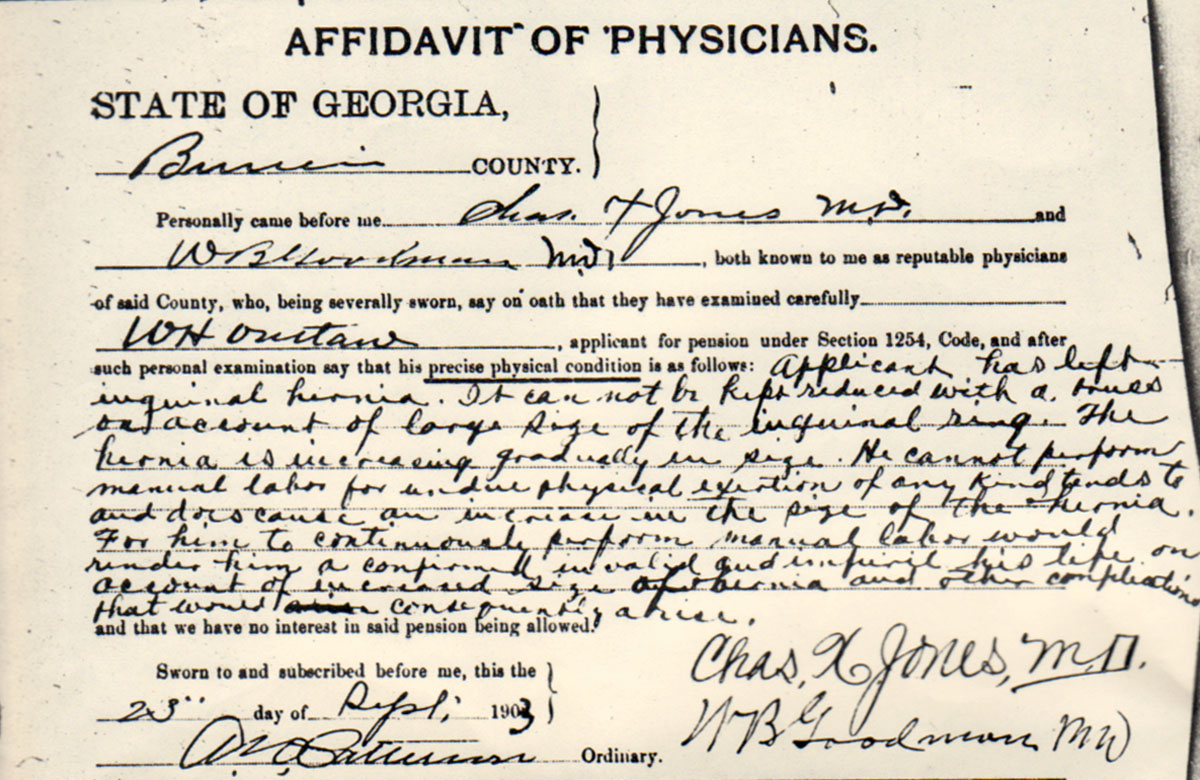 AFFIDAVIT OF PHYSICIANS.
STATE OF GEORGIA,
COUNTY.
Personally came before me Chas. X Jones M.D. and
W B Goodman MD, both known to me as reputable physicians
of said County, who, being severally sworn, say on oath that they have examined carefully
W H Outlaw, applicant for pension under Section 1254, Code, and after
such personal examination say that his precise physical condition is as follows: Applicant has left
inguinal hernia. It can not be kept reduced with a truss
on account of large size of the inguinal ring. The
hernia is increasing gradually in size. He cannot perform
manual labor for undue physical exertion of any kind tends to
and does cause an increase in the size of the hernia.
For him to continuously perform manual labor would
render him a confirmed invalid and imperil his life on
account of increased size of hernia and other complications
that would consequently arise.
and that we have no interest in said pension being allowed.
Sworn to and subscribed before me, this the
23" day of Sept. 1903
Ordinary.
Chas. X Jones, M.D.
W B Goodman MD